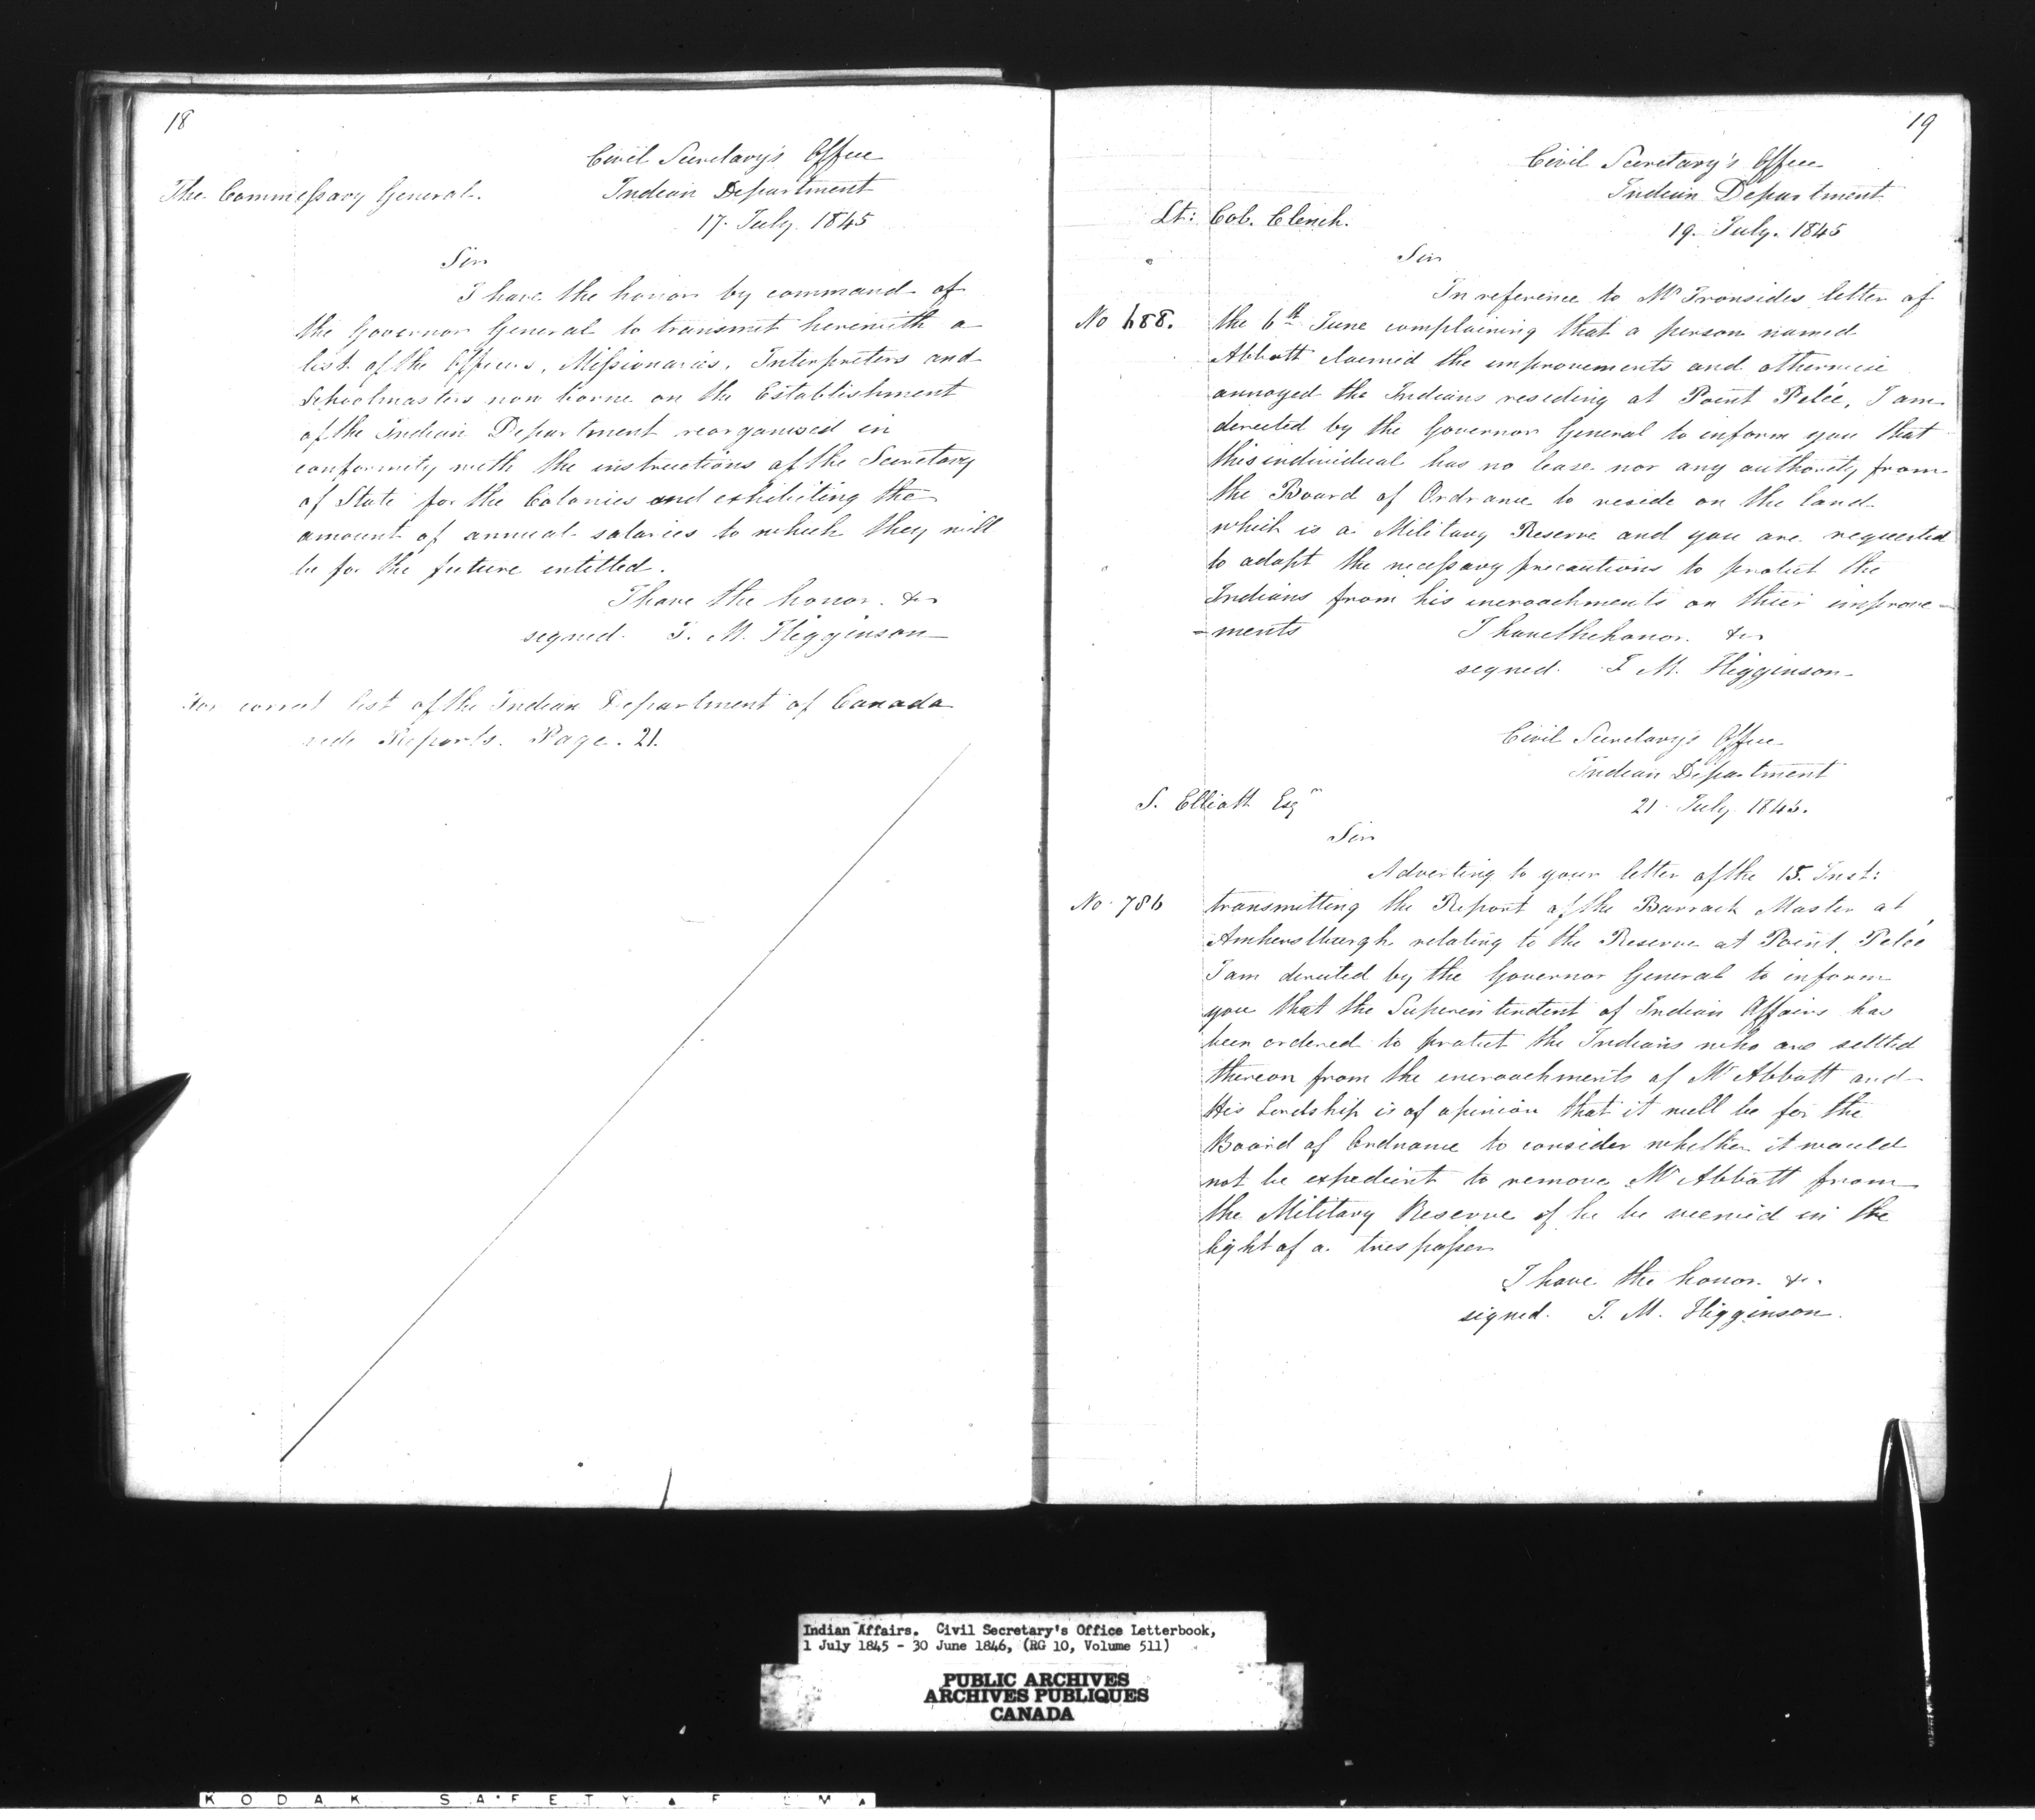 18
Civil Secretary's Office
The Commissary General.
Indian Department
17. July. 1845
Sir
I have the honor by command of
the Governor General to transmit herewith a
list of the Officers, Missionaries, Interpreters and
Schoolmasters now borne on the Establishment
of the Indian Department reorganised in
conformity with the instructions of the Secretary
of State for the Colonies and exhibiting the
amount of annual salaries to which they will
be for the future entitled.
I have the honor. &c
signed. J. M. Higginson
For correct list of the Indian Department of Canada
vide Reports. Page. 21.
19
Civil Secretary's Office
Indian Department
Lt: Col. Clench.
19. July. 1845
Sir
In reference to Mr Ironsides letter of
No 688. the 6th June complaining that a person named
Abbott claimed the improvements and otherwise
annoyed the Indians residing at Point Pelée, I am
directed by the Governor General to inform you that
this individual has no lease nor any authority from
the Board of Ordnance to reside on the land
which is a Military Reserve and you are requested
to adopt the necessary precautions to protect the
Indians from his incroachments on their improve-
-ments I have the honor. &c
signed. J M. Higginson
Civil Secretary's Office
Indian Department
S. Elliott Esqr
21 July. 1845.
Sir
Adverting to your letter of the 15. Inst:
No 786 transmitting the Report of the Barrack Master at
Amherstburgh relating to the Reserve at Point Pelée
I am directed by the Governor General to inform
you that the Superintendent of Indian Affairs has
been ordered to protect the Indians who are settled
thereon from the incroachments of Mr Abbott and
His Lordship is of opinion that it will be for the
Board of Ordnance to consider whether it would
not be expedient to remove Mr Abbott from
the Military Reserve if he be viewed in the
light of a trespasser
I have the honor. &c.
signed. J. M. Higginson.
Indian Affairs. Civil Secretary's Office Letterbook,
1 July 1845 - 30 June 1846, (RG 10, Volume 511)
PUBLIC ARCHIVES
ARCHIVES PUBLIQUES
CANADA
KODAK SAFETY